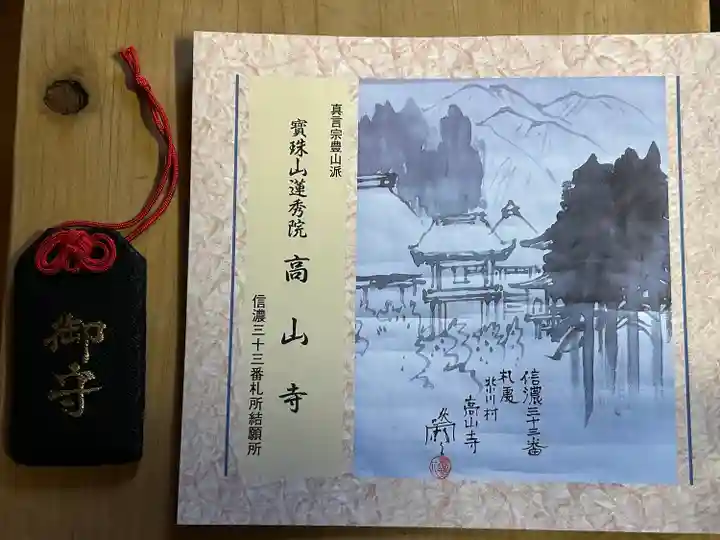 御守
真言宗豊山派
寳珠山蓮秀院 高山寺
信濃三十三番札所結願所
信濃三十三番
札處
高山寺